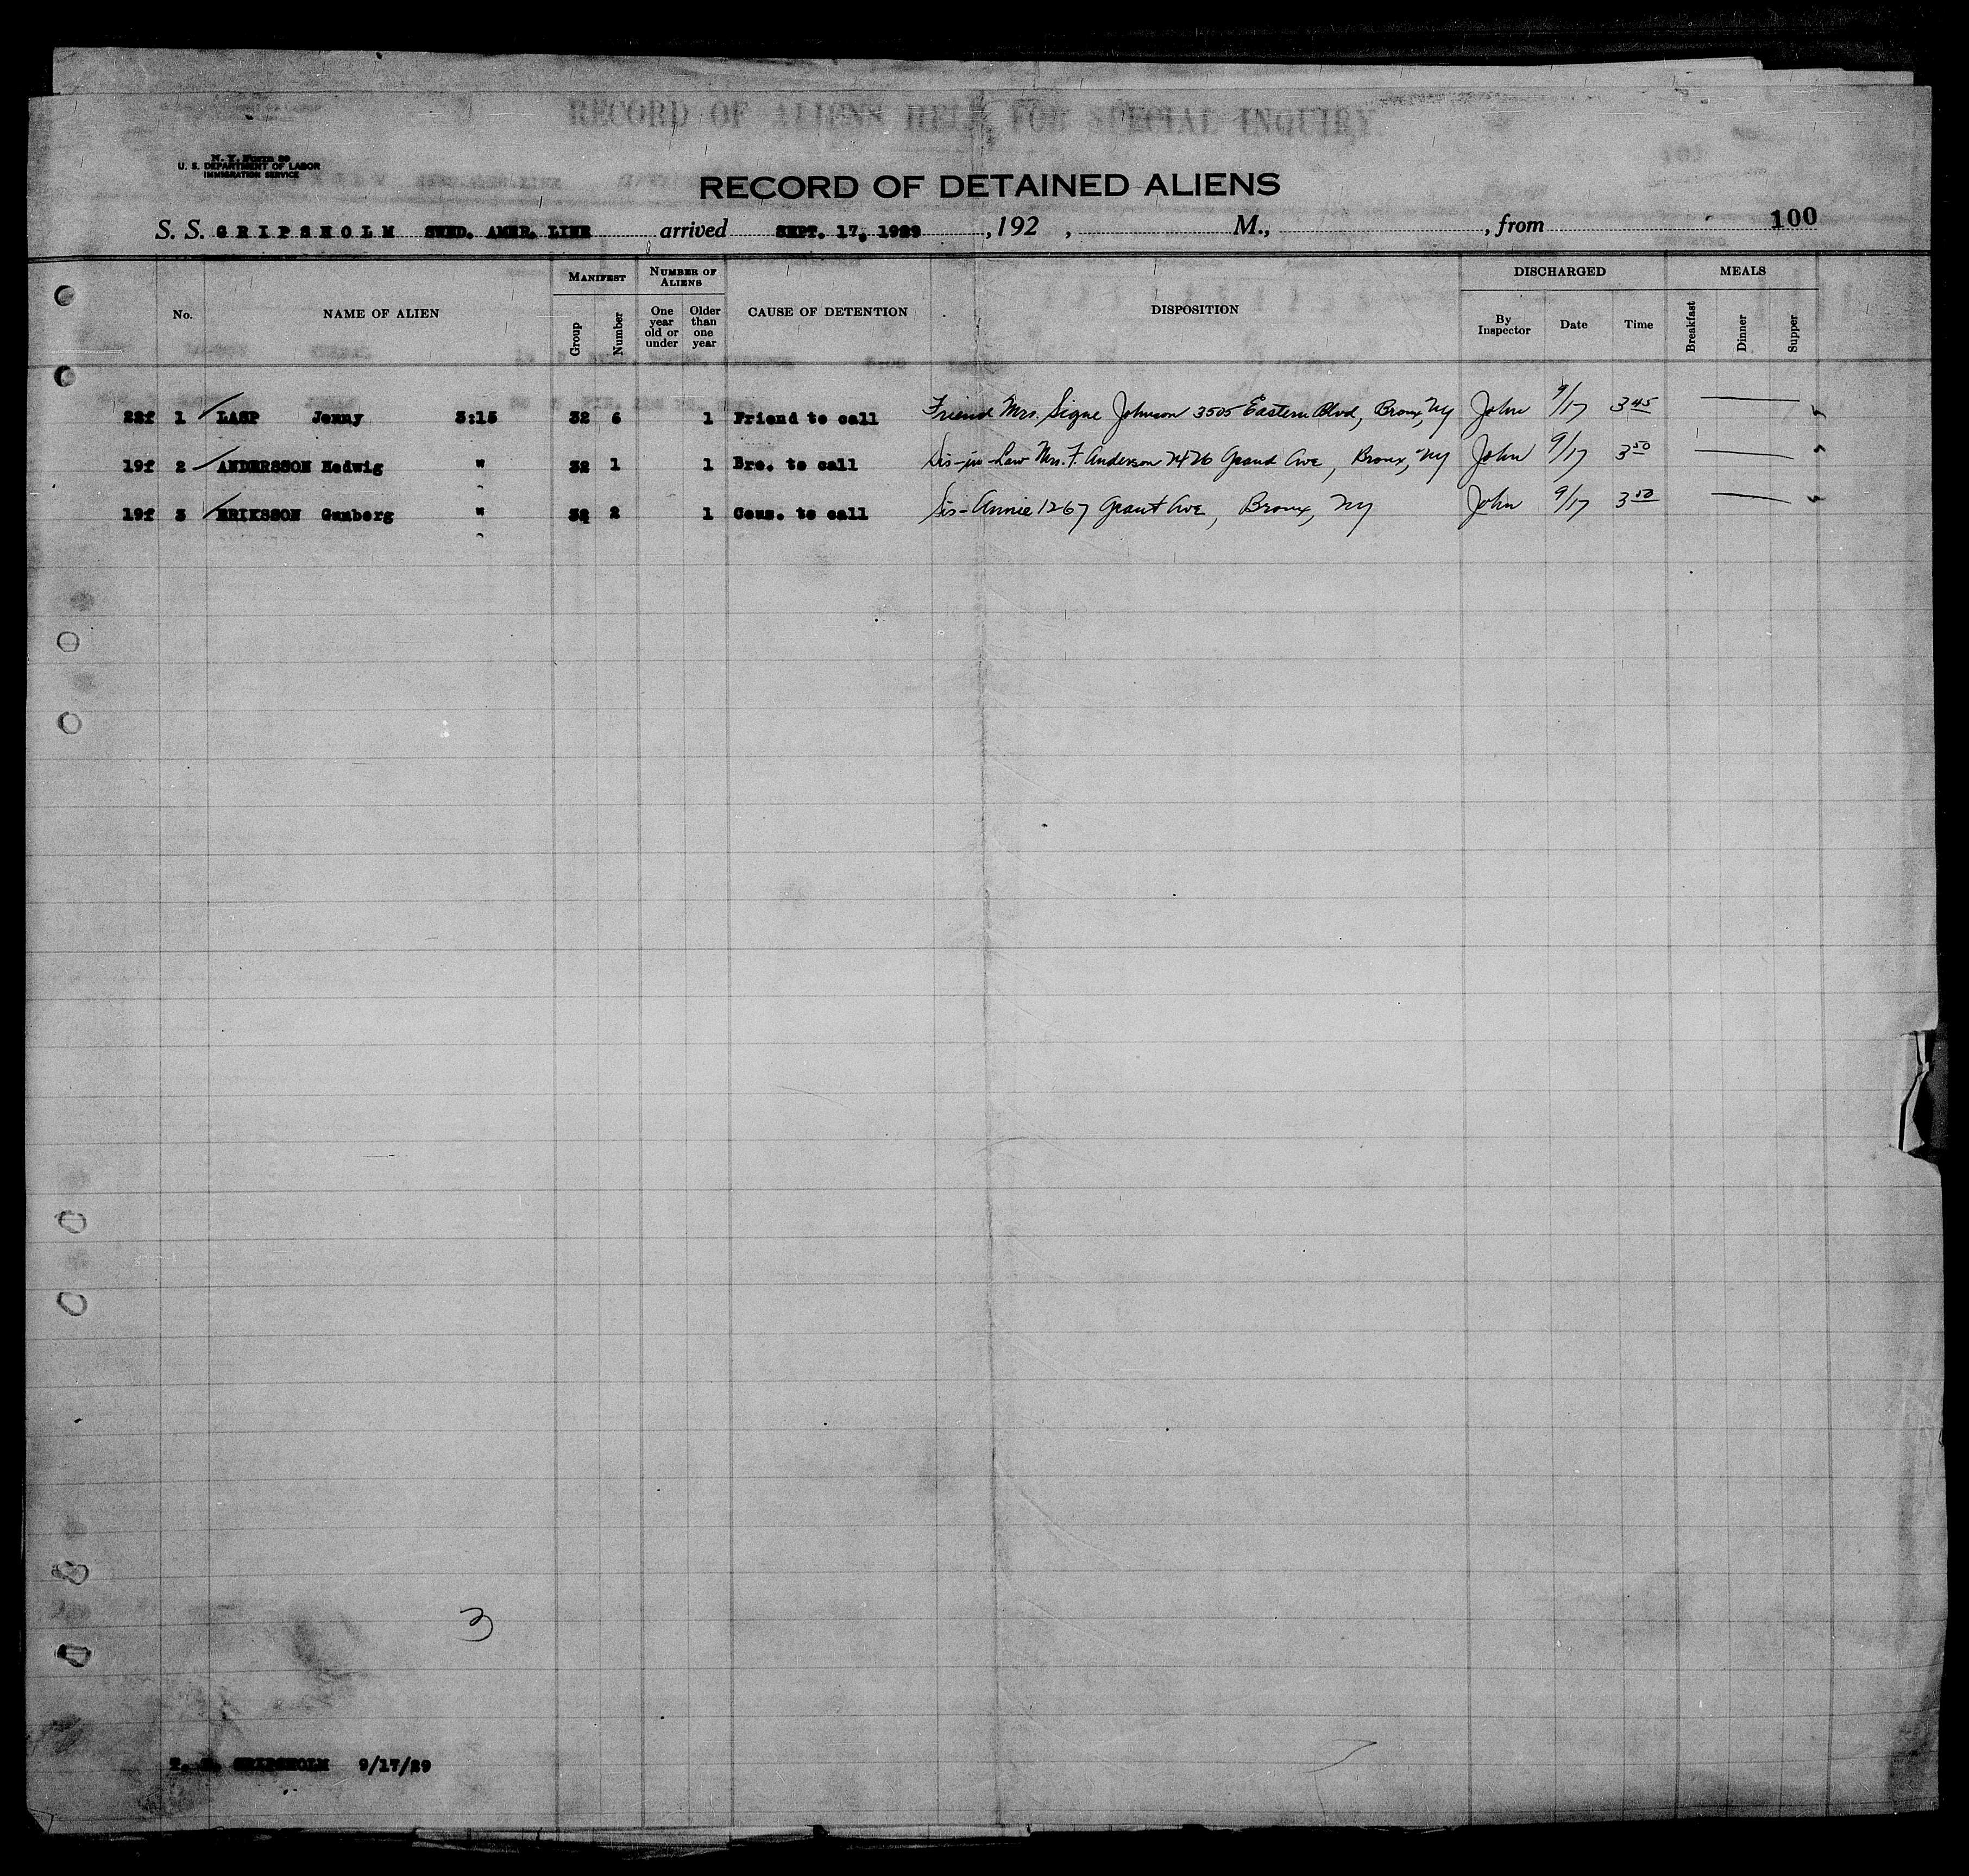 RECORD OF ALIENS HELD FOR SPECIAL INQUIRY
N. Y. Form 99
U. S. DEPARTMENT OF LABOR
IMMIGRATION SERVICE
RECORD OF DETAINED ALIENS
S. S. GRIPSHOLM SWED. AMER. LINE arrived SEPT. 17, 1929, 192 , M., , from 100
No. NAME OF ALIEN MANIFEST Group Number NUMBER OF ALIENS One year old or under Older than one year CAUSE OF DETENTION DISPOSITION DISCHARGED By Inspector Date Time MEALS Breakfast Dinner Supper
22f 1 LASP Jenny 3:15 32 6 1 Friend to call Friend Mrs. Signe Johnson 3505 Eastern Blvd, Bronx, NY John 9/17 3 45
19f 2 ANDERSSON Hedwig " 32 1 1 Bro. to call Sis-in-Law Mrs. F. Anderson 2426 Grand Ave, Bronx, NY John 9/17 3 50
19f 3 ERIKSSON Gunborg " 32 2 1 Cous. to call Sis-Annie 1267 Grant Ave, Bronx, NY John 9/17 3 50
3
GRIPSHOLM 9/17/29